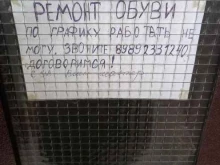 РЕМОНТ ОБУВИ
ПО ГРАФИКУ РАБОТАТЬ НЕ
МОГУ, ЗВОНИТЕ 89892331240
ДОГОВОРИМСЯ!